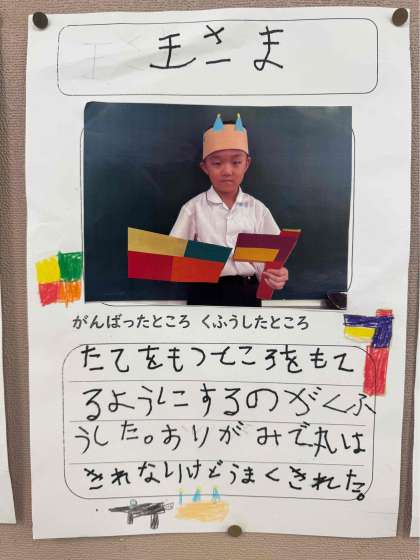 王さま
がんばったところ くふうしたところ
たてをもつところをもて
るようにするのがくふ
うした。おりがみで丸は
きれないけどうまくきれた。